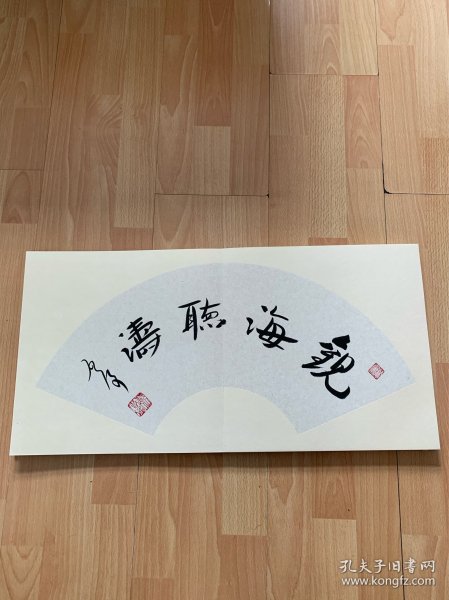 觀海聽濤
孔夫子旧书网
www.kongfz.com